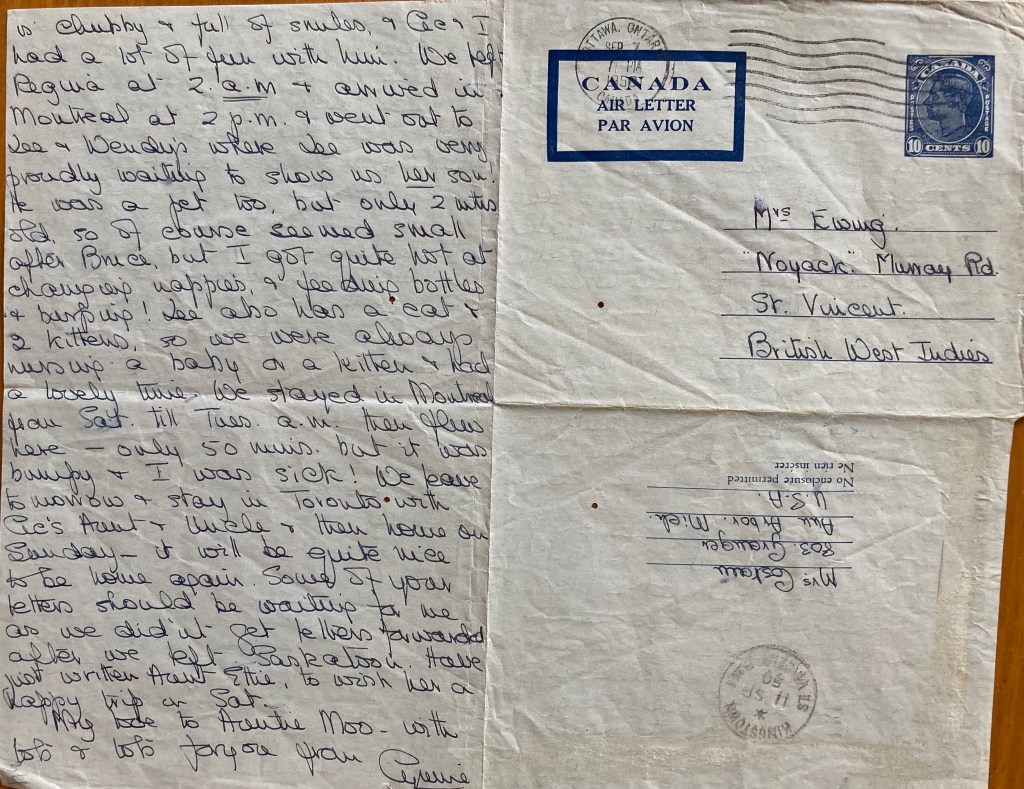 is chubby & full of smiles, & Cec & I
had a lot of fun with him. We left
Regina at 2. a.m & arrived in
Montreal at 2 p.m & went out to
Lee & Wendy's where Lee was very
proudly waiting to show us her son!
He was a pet too, but only 2 mths
old, so of course seemed small
after Bruce, but I got quite hot at
changing nappies, & feeding bottles
& burping! Lee also has a cat &
2 kittens, so we were always
nursing a baby or a kitten & had
a lovely time. We stayed in Montreal
from Sat. till Tues. a.m. then flew
here – only 50 mins. but it was
bumpy & I was sick! We leave
tomorrow & stay in Toronto with
Cec's Aunt & Uncle & then home on
Sunday – it will be quite nice
to be home again. Some of your
letters should be waiting for me
as we did'nt get letters forwarded
after we left Saskatoon. Have
just written Aunt Ettie, to wish her a
happy trip on Sat.
My love to Auntie Moo – with
lots & lots for you from
OTTAWA, ONTARIO
SEP 7
PM
CANADA
AIR LETTER
PAR AVION
CANADA
POSTAGE
10 CENTS 10
Mrs Ewing.
"Noyack" Murray Rd.
St. Vincent.
British West Indies
No enclosure permitted
Ne rien insérer
Mrs. Costain
803. Granger
Ann Arbor. Mich
U.S.A.
KINGSTOWN
*
11 SP
50
ST. VINCENT